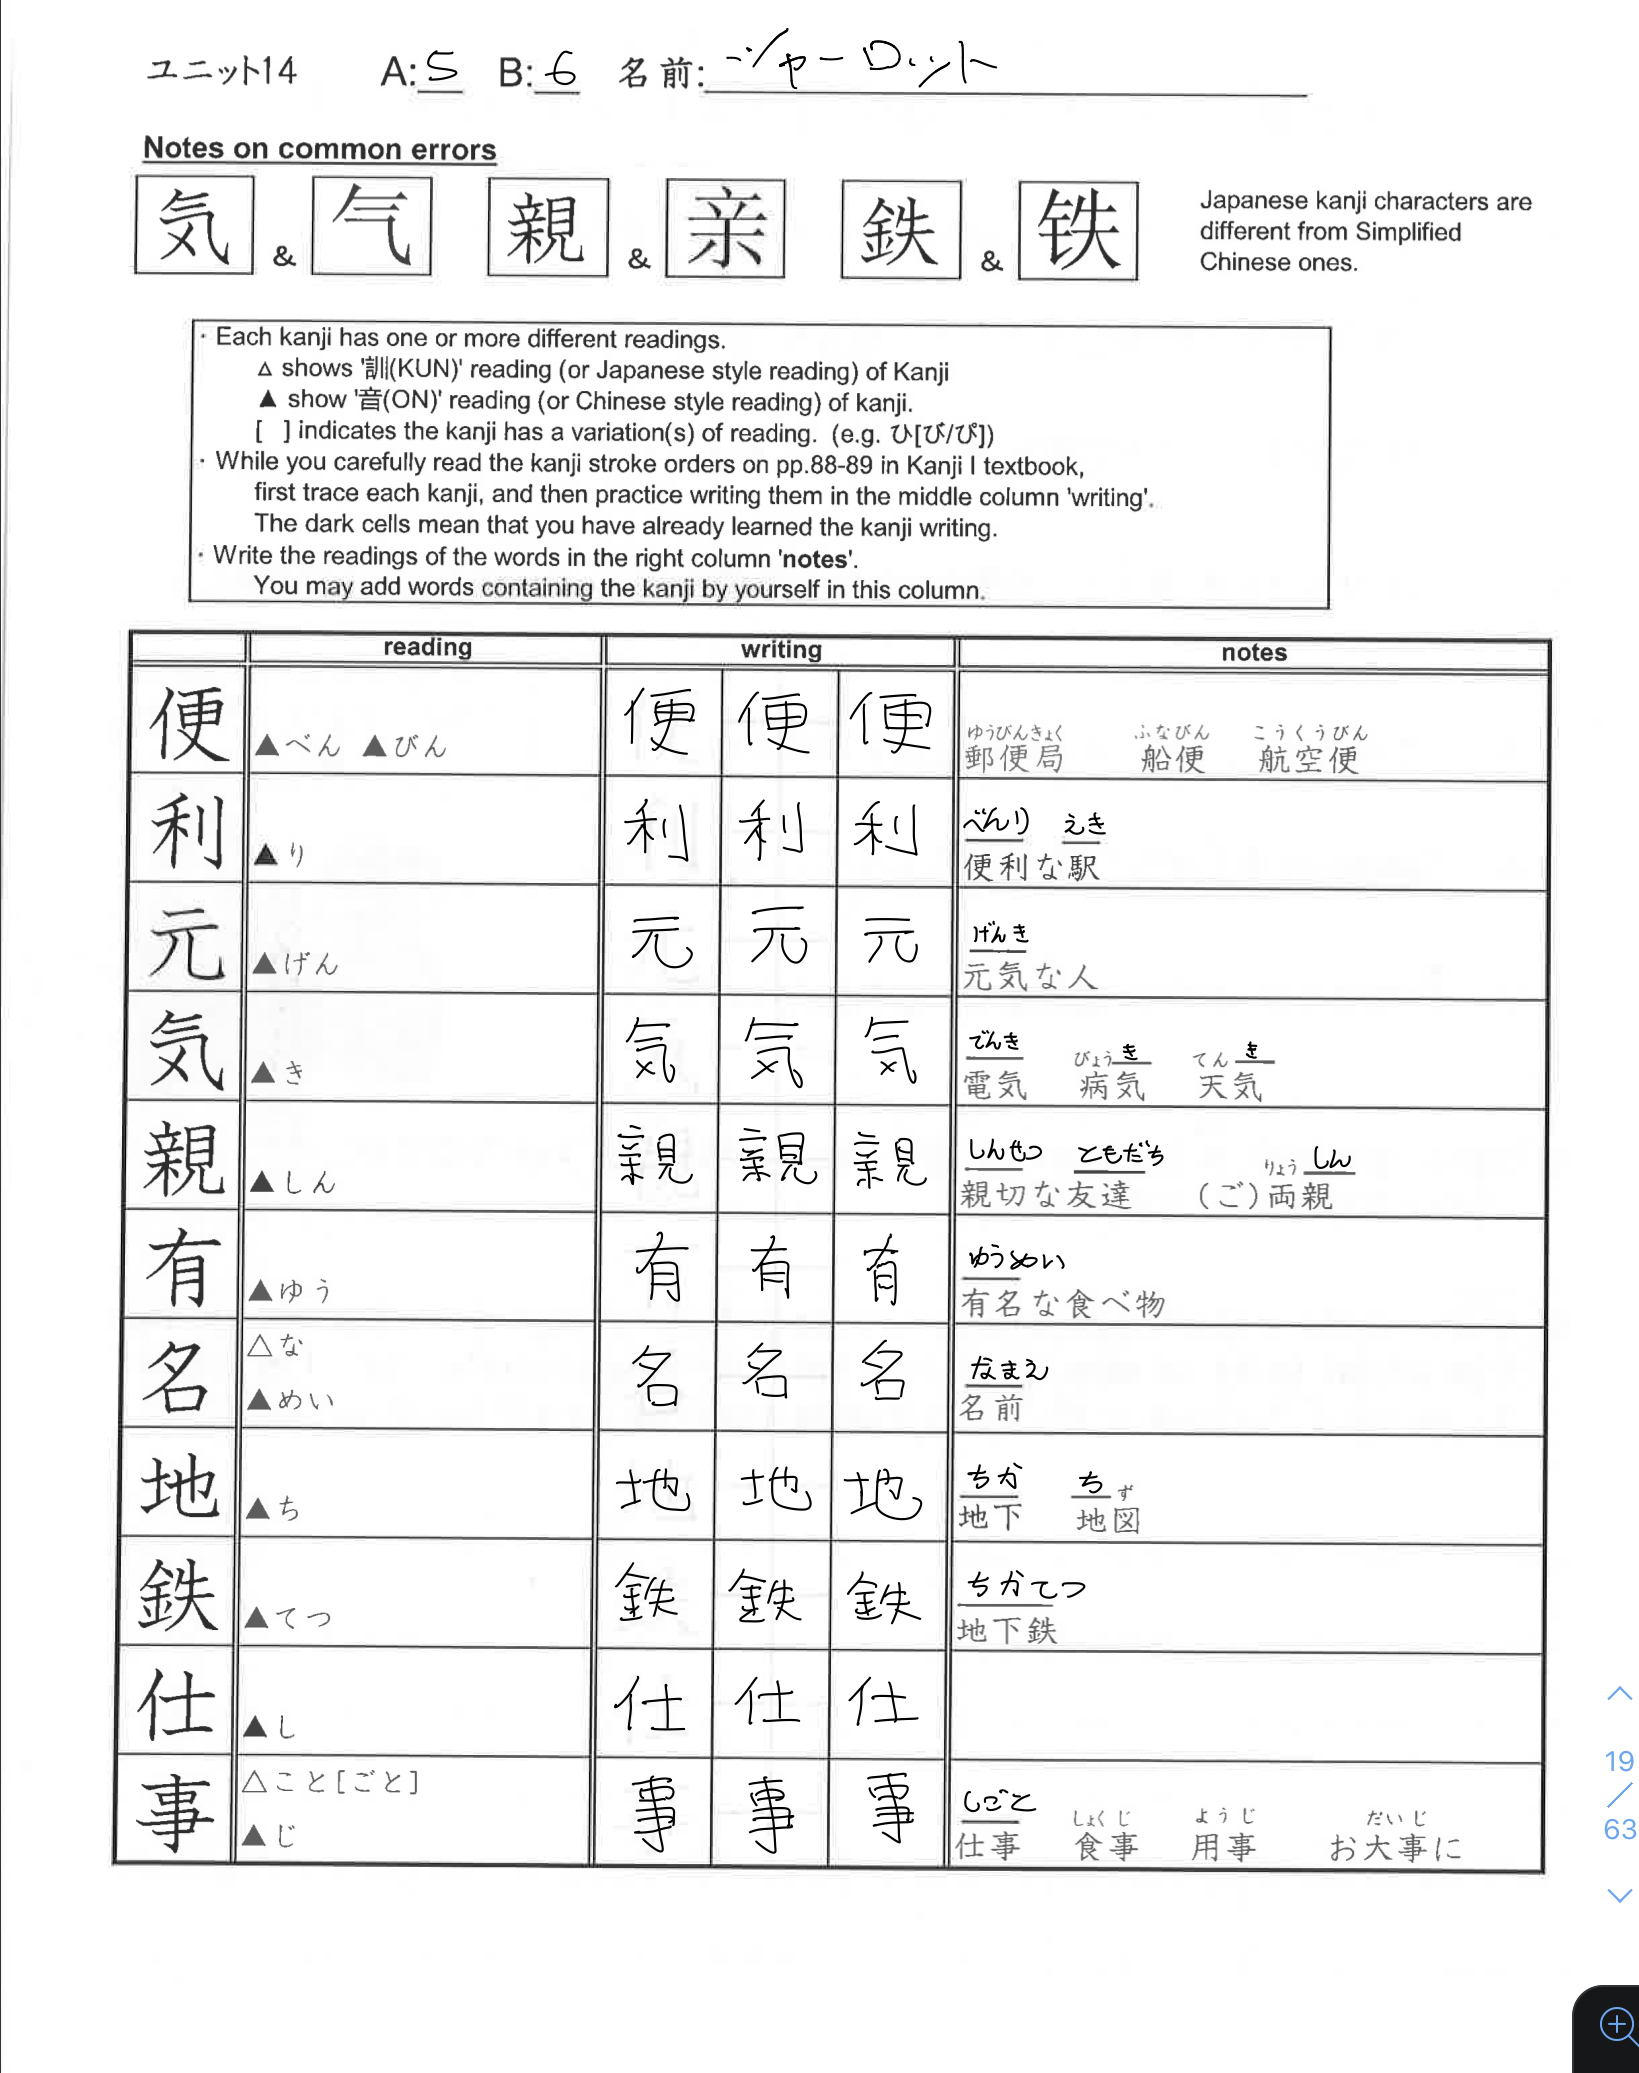 ユニット14 A:5 B:6 名前:シャーロット
Notes on common errors
気 & 气 親 & 亲 鉄 & 铁
Japanese kanji characters are
different from Simplified
Chinese ones.
· Each kanji has one or more different readings.
△ shows '訓(KUN)' reading (or Japanese style reading) of Kanji
▲ show '音(ON)' reading (or Chinese style reading) of kanji.
[ ] indicates the kanji has a variation(s) of reading. (e.g. ひ[び/ぴ])
· While you carefully read the kanji stroke orders on pp.88-89 in Kanji I textbook,
first trace each kanji, and then practice writing them in the middle column 'writing'.
The dark cells mean that you have already learned the kanji writing.
· Write the readings of the words in the right column 'notes'.
You may add words containing the kanji by yourself in this column.
reading writing notes
便 ▲べん ▲びん 便 便 便
ゆうびんきょく ふなびん こうくうびん
郵便局 船便 航空便
利 ▲り 利 利 利
べんり えき
便利な駅
元 ▲げん 元 元 元
げんき
元気な人
気 ▲き 気 気 気
でんき びょうき てんき
電気 病気 天気
親 ▲しん 親 親 親
しんせつ ともだち りょうしん
親切な友達 (ご)両親
有 ▲ゆう 有 有 有
ゆうめい
有名な食べ物
名 △な
▲めい 名 名 名
なまえ
名前
地 ▲ち 地 地 地
ちか ちず
地下 地図
鉄 ▲てつ 鉄 鉄 鉄
ちかてつ
地下鉄
仕 ▲し 仕 仕 仕
事 △こと[ごと]
▲じ 事 事 事
しごと しょくじ ようじ だいじ
仕事 食事 用事 お大事に
19
/
63